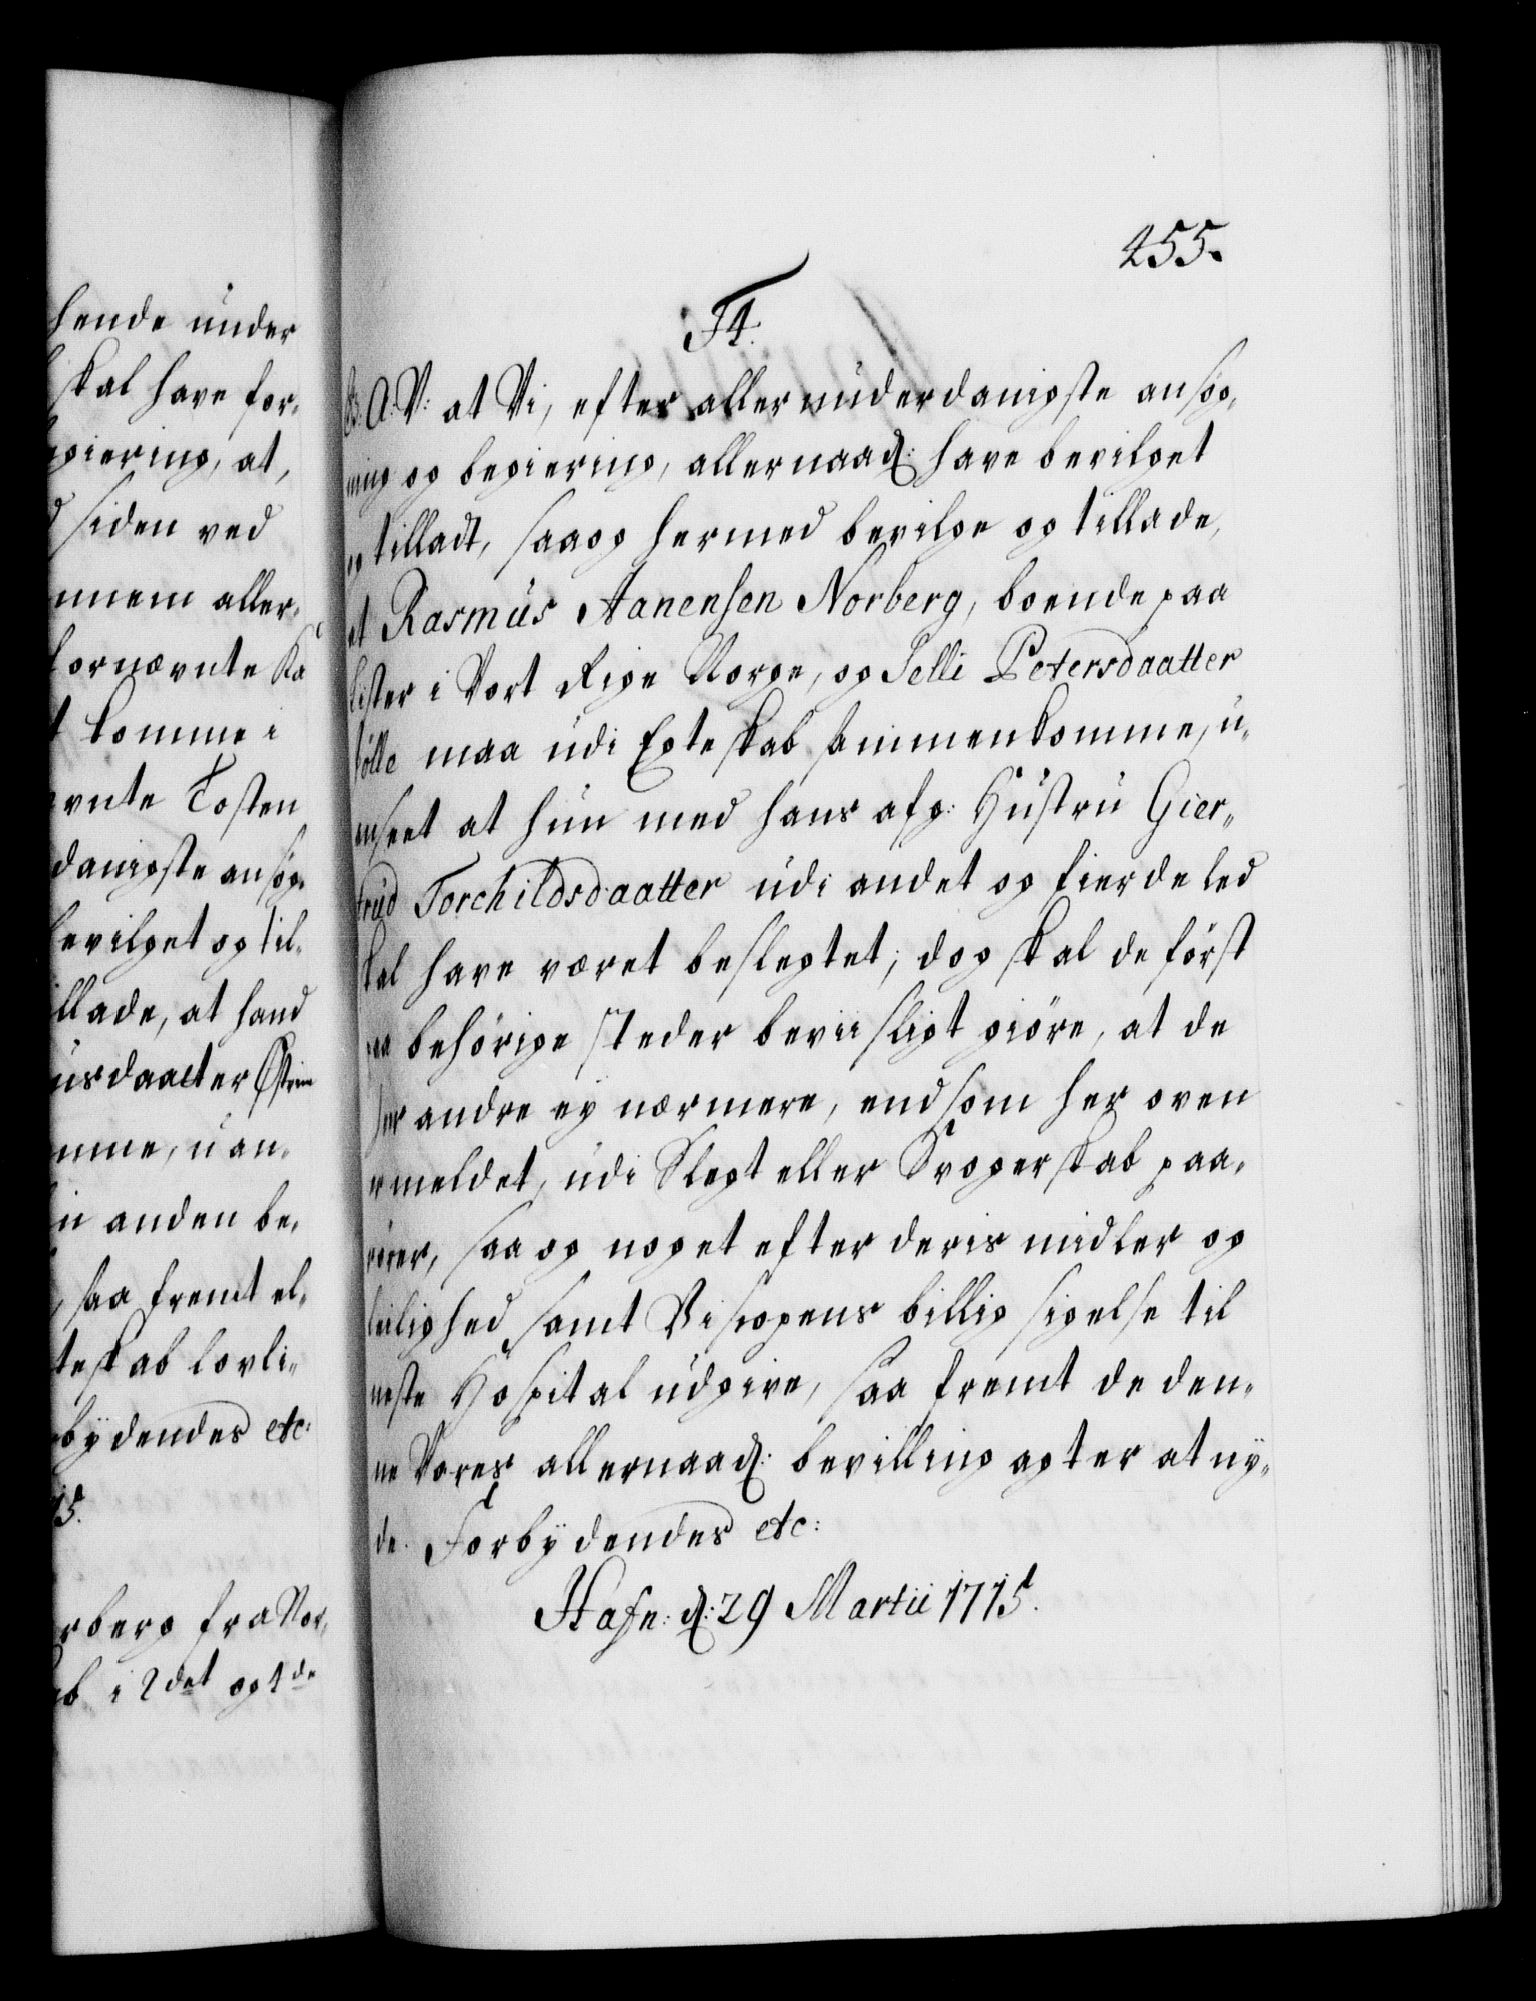 hende under
skal have for-
giering, at,
siden ved
nnem aller-
fornævnte
komme i
vnte Tosten
danigste ansøg-
bevilget og til-
llade, at hand
usdaatter
mme, uan-
anden be-
saa fremt el-
teskab lovli-
bÿdendes etc:
15.
rberg fra Nor-
ab i 2det og 4de
455.
F4.
G: A: V: at Vi, efter allerunderdanigste ansøg-
ning og begiering, allernaad: have bevilget
og tilladt, saa og hermed bevilge og tillade,
at Rasmus Aanensen Norberg, boende paa
Lister i Vort Rige Norge, og Selli Petersdaatter
maa udi Egteskab sammenkomme, u-
anseet at hun med hans afg: Hustru Gier-
trud Torchildsdaatter udi andet og fierde led
skal have været beslegtet; dog skal de först
paa behörige steder beviisligt giöre, at de
hver andre ey nærmere, end som her oven
ermeldet, udi Slegt eller Svogerskab paa-
rörer, saa og noget efter deris midler og
leilighed samt Biscopens billig sigelse til
neste Hospital udgive, saa fremt de den-
ne Vores allernaad: bevilling agter at ny-
de. Forbÿdendes etc:
Hafn: d: 29 Martii 1715.